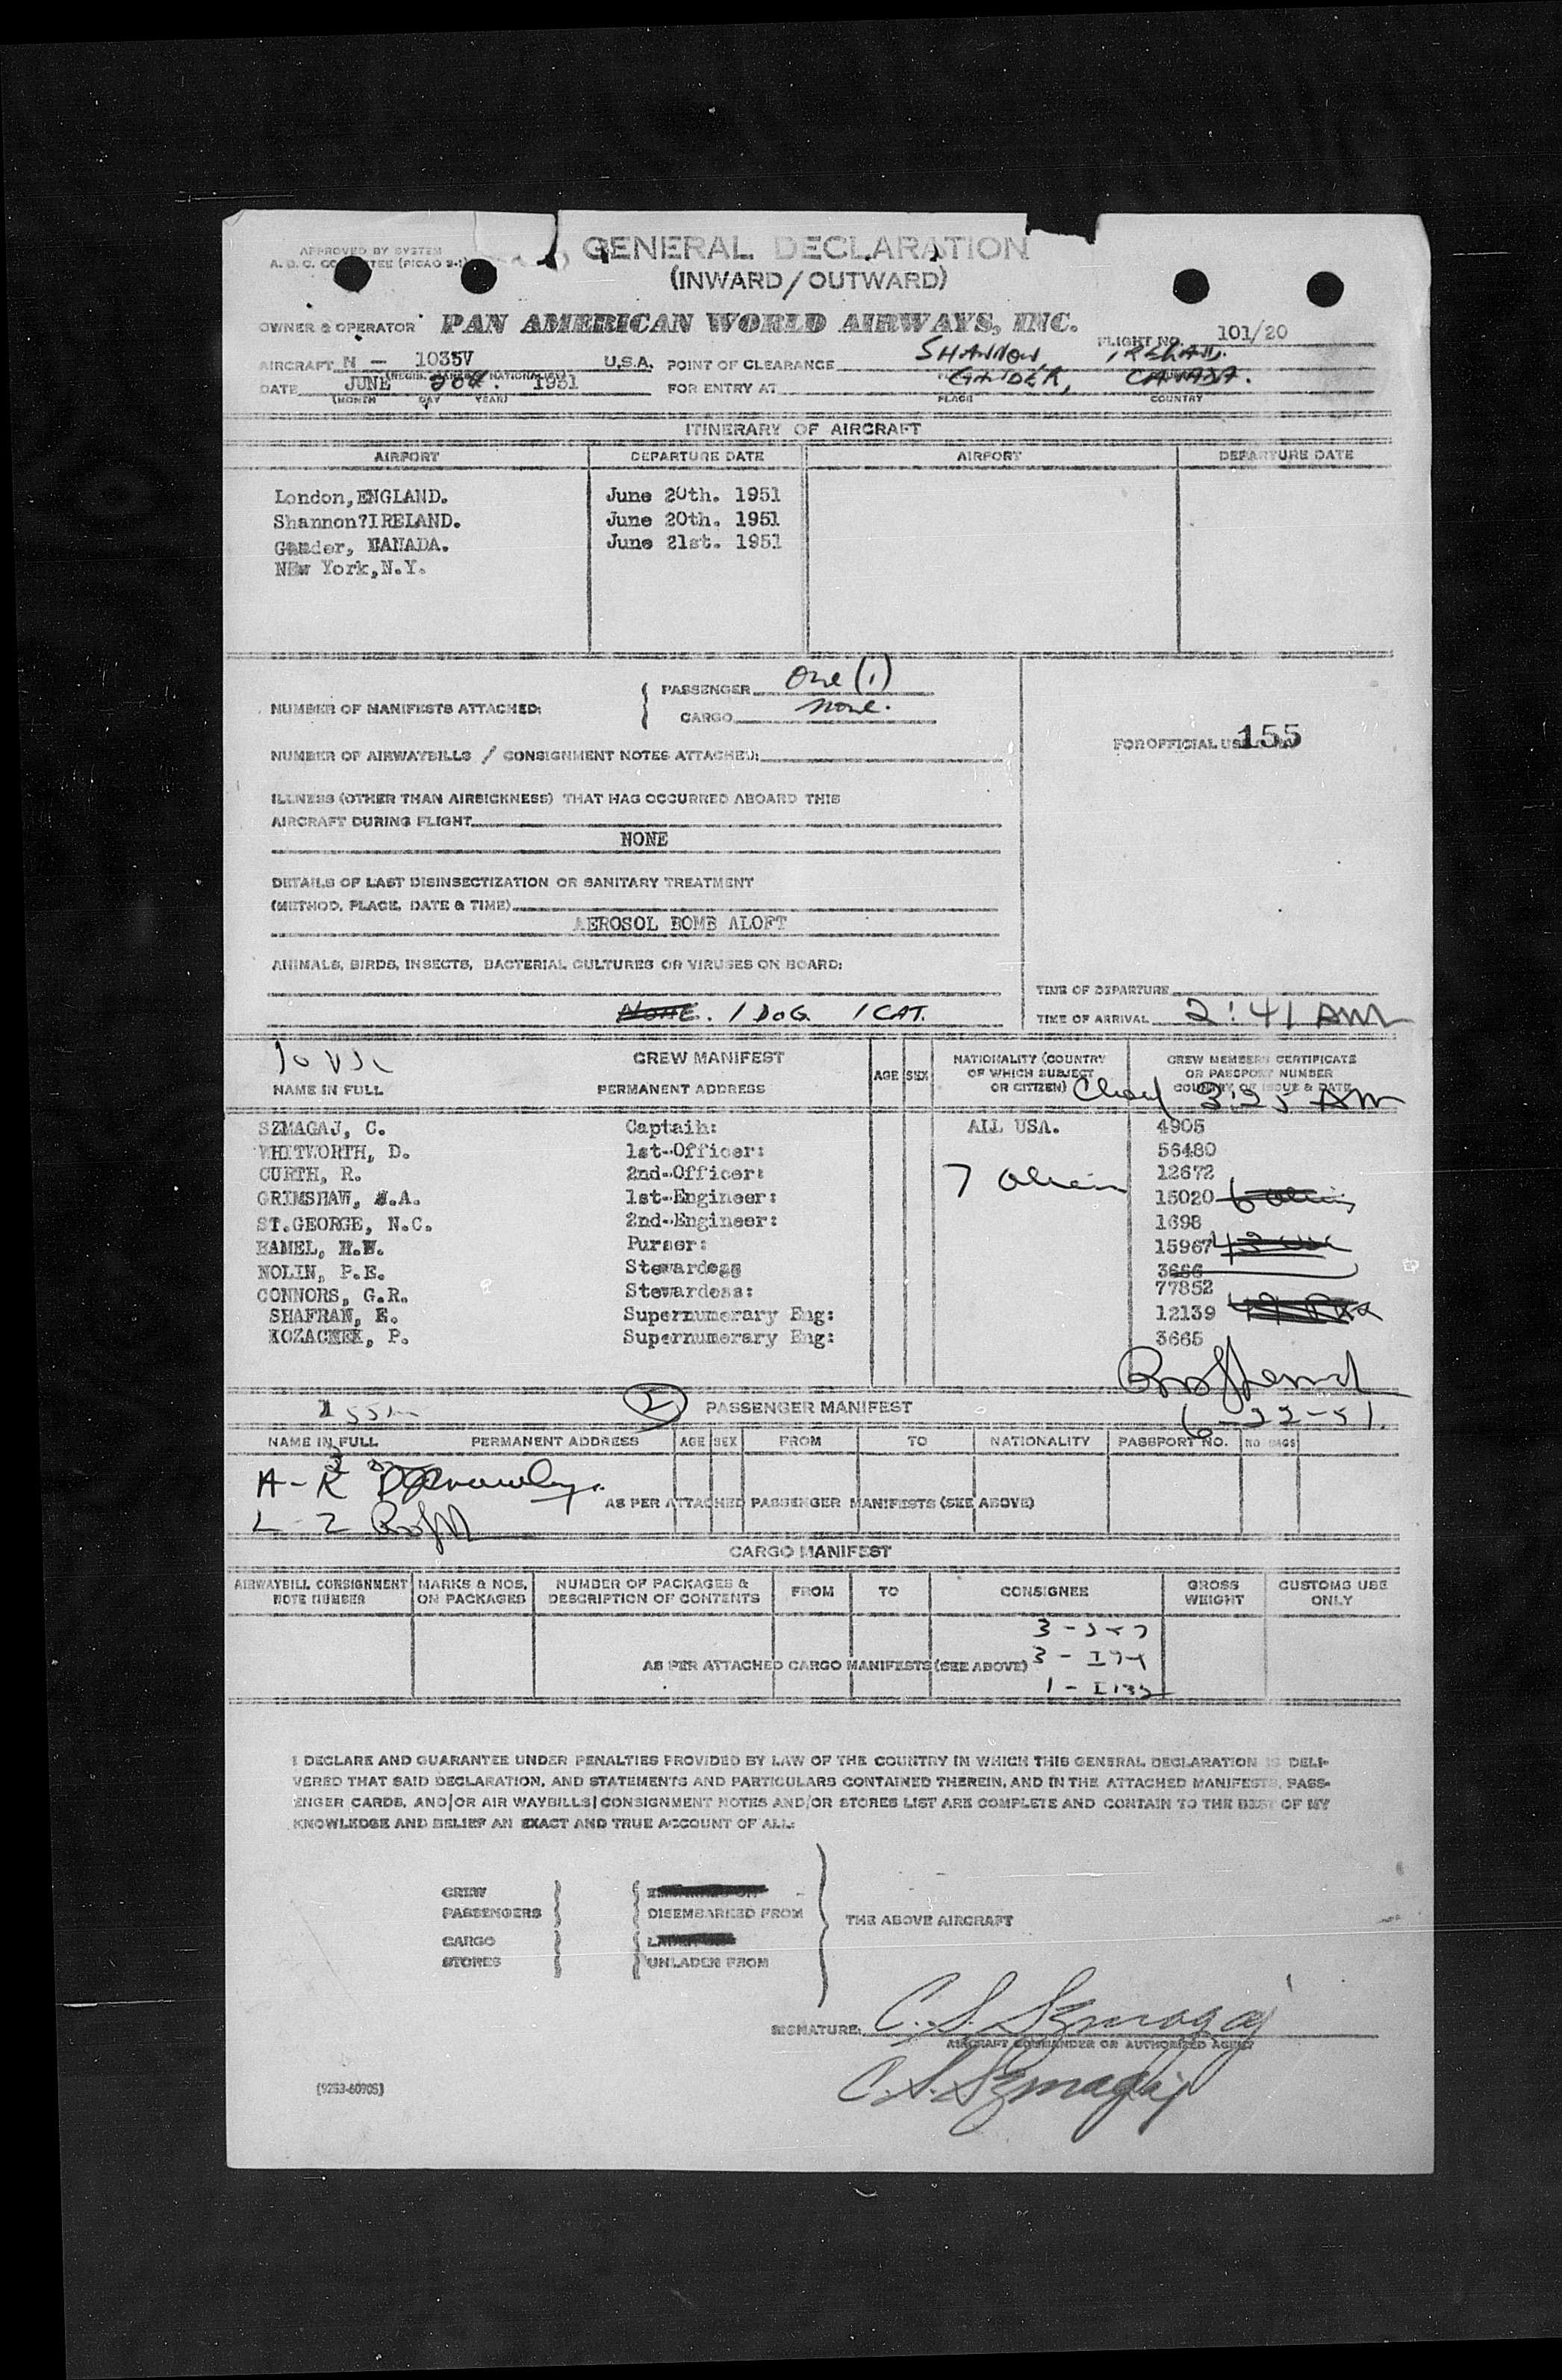 APPROVED BY SYSTEM
A. D. C. (PICAO 9-1)
GENERAL DECLARATION
(INWARD / OUTWARD)
OWNER & OPERATOR PAN AMERICAN WORLD AIRWAYS, INC.
FLIGHT NO. 101/20
AIRCRAFT N - 1035V U.S.A. POINT OF CLEARANCE SHANNON, IRELAND.
DATE JUNE 20th. 1951 FOR ENTRY AT GANDER, CANADA.
(MONTH DAY YEAR) PLACE COUNTRY
ITINERARY OF AIRCRAFT
AIRPORT DEPARTURE DATE AIRPORT DEPARTURE DATE
London,ENGLAND. June 20th. 1951
Shannon?IRELAND. June 20th. 1951
Gander, CANADA. June 21st. 1951
NEw York,N.Y.
NUMBER OF MANIFESTS ATTACHED: PASSENGER One (1)
CARGO none.
FOR OFFICIAL USE 155
NUMBER OF AIRWAYBILLS / CONSIGNMENT NOTES ATTACHED:
ILLNESS (OTHER THAN AIRSICKNESS) THAT HAS OCCURRED ABOARD THIS
AIRCRAFT DURING FLIGHT
NONE
DETAILS OF LAST DISINSECTIZATION OR SANITARY TREATMENT
(METHOD, PLACE, DATE & TIME)
AEROSOL BOMB ALOFT
ANIMALS, BIRDS, INSECTS, BACTERIAL CULTURES OR VIRUSES ON BOARD:
NONE. 1 DOG 1 CAT.
TIME OF DEPARTURE
TIME OF ARRIVAL 2:41 AM
CREW MANIFEST
NAME IN FULL PERMANENT ADDRESS AGE SEX NATIONALITY (COUNTRY OF WHICH SUBJECT OR CITIZEN) CREW MEMBERS CERTIFICATE OR PASSPORT NUMBER COUNTRY OF ISSUE & DATE
3:25 AM
SZMAGAJ, C. Captain: ALL USA. 4905
WHITWORTH, D. 1st-Officer: 56480
CURTH, R. 2nd-Officer: 12672
GRIMSHAW, .A. 1st-Engineer: 15020
ST.GEORGE, N.C. 2nd-Engineer: 1698
HAMEL, H.W. Purser: 15967
NOLIN, P.E. Stewardess 3666
CONNORS, G.R. Stewardess: 77852
SHAFRAN, E. Supernumerary Eng: 12139
KOZACHEK, P. Supernumerary Eng: 3665
PASSENGER MANIFEST
6-22-51.
NAME IN FULL PERMANENT ADDRESS AGE SEX FROM TO NATIONALITY PASSPORT NO. NO BAGS
A-K
AS PER ATTACHED PASSENGER MANIFESTS (SEE ABOVE)
L-Z
CARGO MANIFEST
AIRWAYBILL CONSIGNMENT NOTE NUMBER MARKS & NOS. ON PACKAGES NUMBER OF PACKAGES & DESCRIPTION OF CONTENTS FROM TO CONSIGNEE GROSS WEIGHT CUSTOMS USE ONLY
AS PER ATTACHED CARGO MANIFESTS (SEE ABOVE)
I DECLARE AND GUARANTEE UNDER PENALTIES PROVIDED BY LAW OF THE COUNTRY IN WHICH THIS GENERAL DECLARATION IS DELI-
VERED THAT SAID DECLARATION, AND STATEMENTS AND PARTICULARS CONTAINED THEREIN, AND IN THE ATTACHED MANIFESTS, PASS-
ENGER CARDS, AND/OR AIR WAYBILLS/CONSIGNMENT NOTES AND/OR STORES LIST ARE COMPLETE AND CONTAIN TO THE BEST OF MY
KNOWLEDGE AND BELIEF AN EXACT AND TRUE ACCOUNT OF ALL:
CREW
PASSENGERS DISEMBARKED FROM THE ABOVE AIRCRAFT
CARGO
STORES UNLADEN FROM
SIGNATURE. C. S. Szmagaj
AIRCRAFT COMMANDER OR AUTHORIZED AGENT
C. S. Szmagaj
(9253-60705)